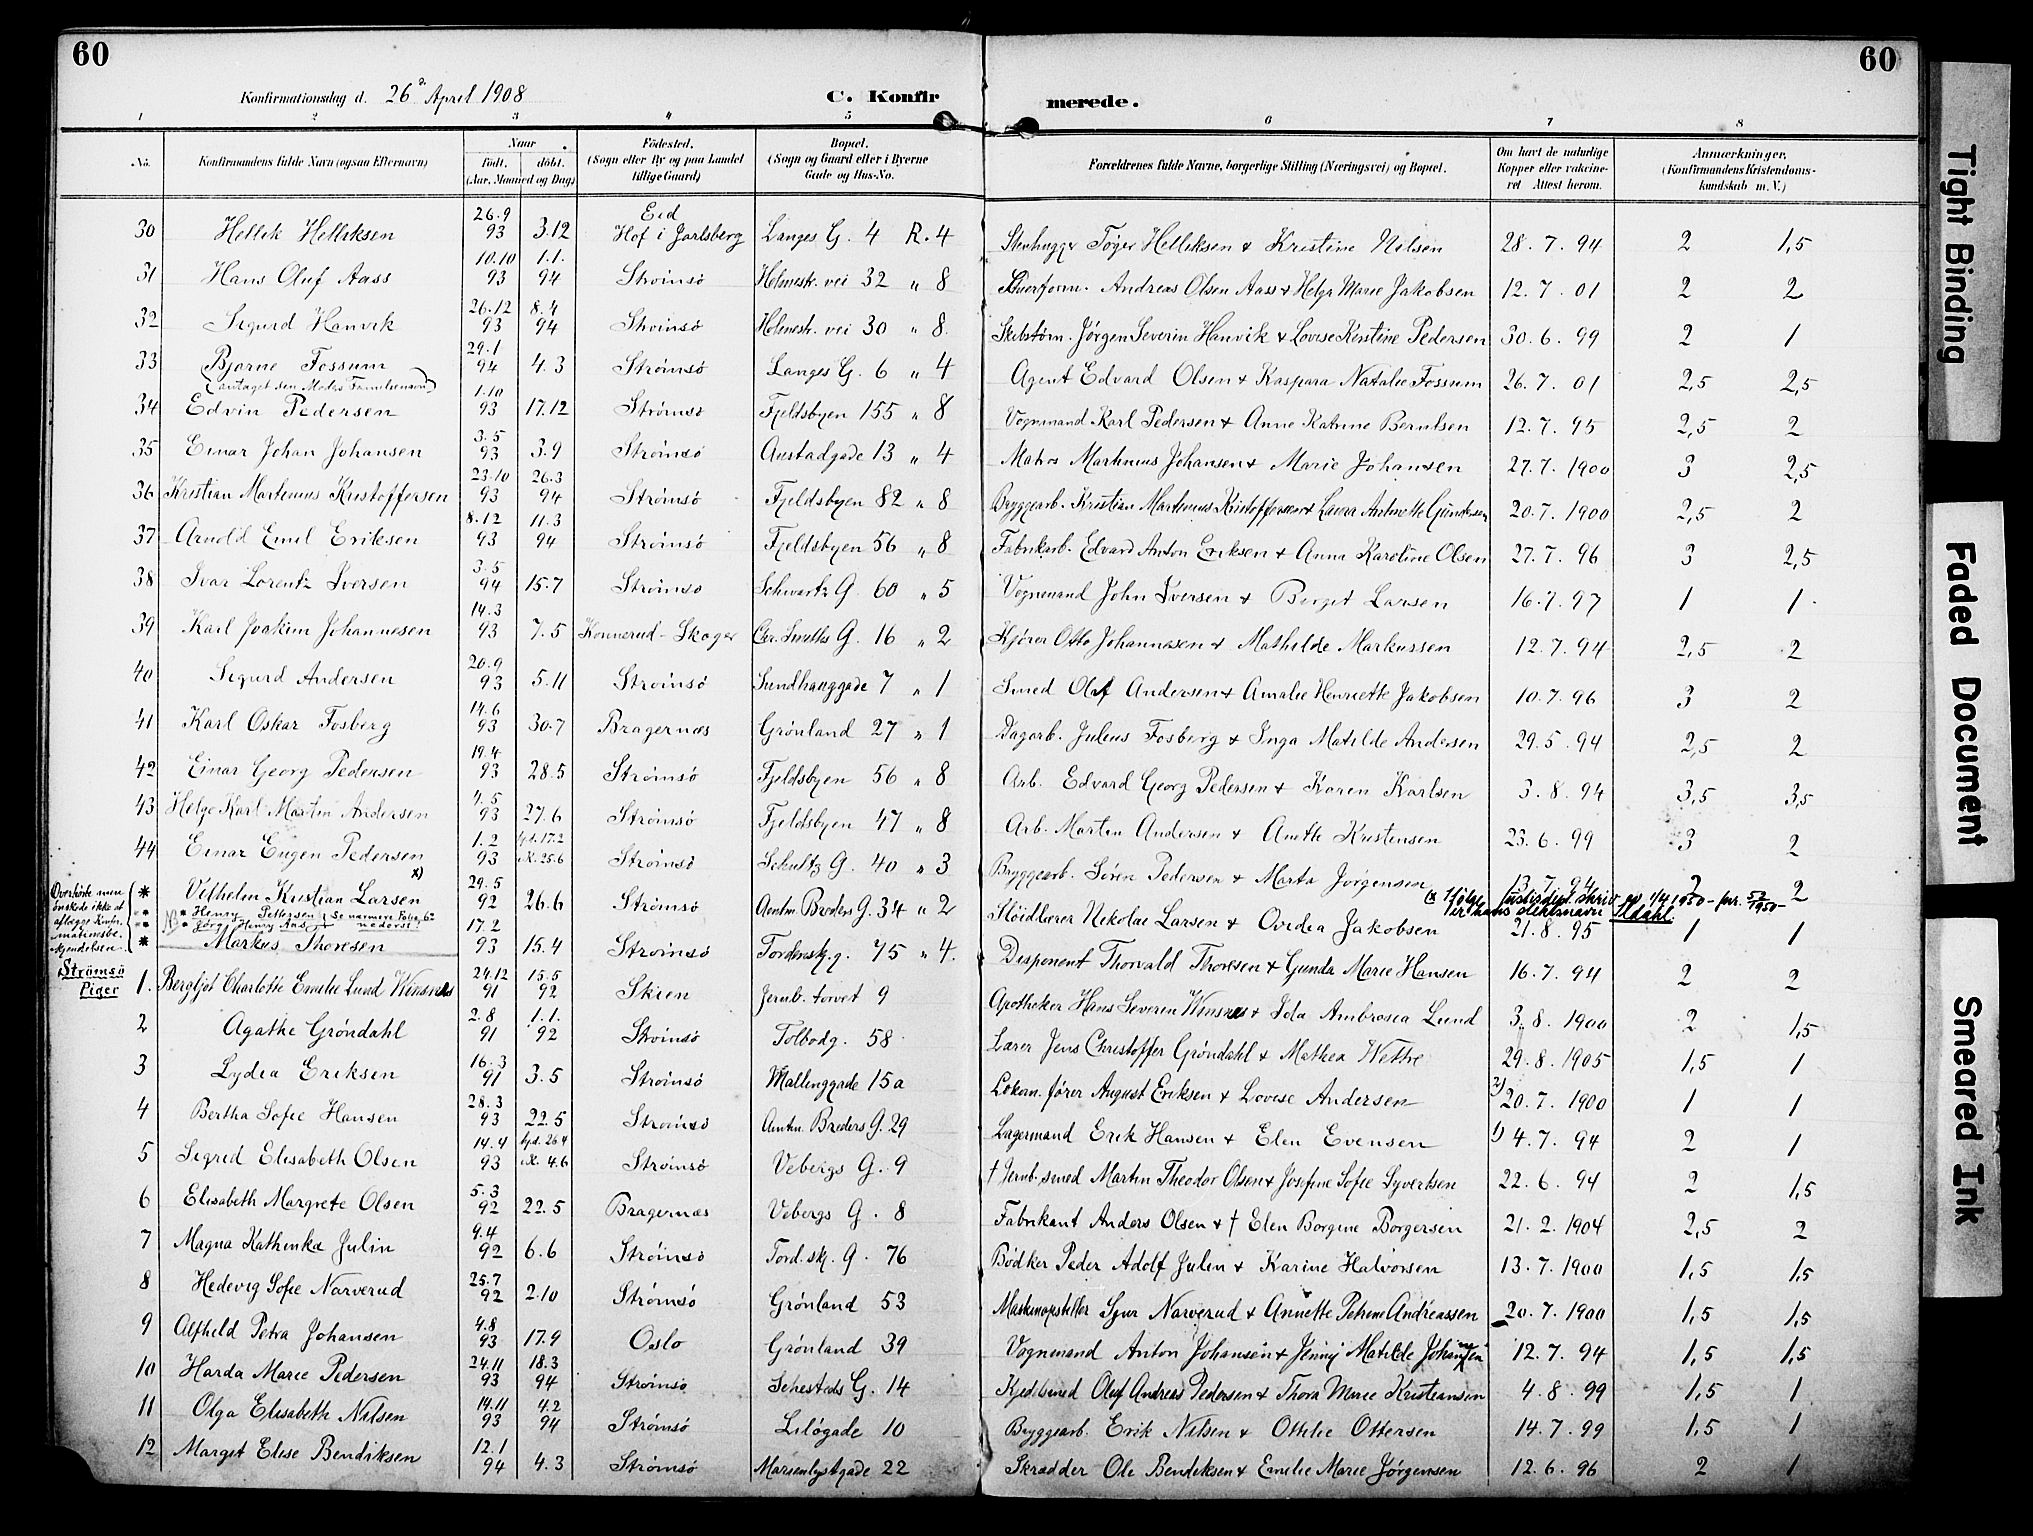 60
60
Konfirmationsdag d. 26 April 1908
C. Konfirmerede.
1 2 3 4 5 6 7 8
No. Konfirmandens fulde Navn (ogsaa Efternavn) Naar Født. døbt. (Aar, Maaned og Dag) Fødested. (Sogn eller By og paa Landet tillige Gaard) Bopæl. (Sogn og Gaard eller i Byerne Gade og Hus-No. Forældrenes fulde Navne, borgerlige Stilling (Næringsvei) og Bopæl. Om havt de naturlige Kopper eller vakcineret. Attest herom. Anmærkninger. (Konfirmandens Kristendomskundskab m. V.)
30 Hellek Helleksen 26.9 93 3.12 Eid Hof i Jarlsberg Langes G. 4 R. 4 Stenhugger Tøger Helleksen & Kristine Nilsen 28.7.94 2 1,5
31 Hans Oluf Aass 10.10 93 1.1. 94 Strømsø Holmestr. vei 32 " 8 Andreas Olsen Aass & Helga Marie Jakobsen 12.7.01 2 2
32 Sigurd Hanvik 26.12 93 8.4 94 Strømsø Holmestr. vei 30 " 8. Skibstøm. Jørgen Severin Hanvik & Lovise Kerstine Pedersen 30.6.99 2 1
33 Bjarne Fossum (antaget sin Moders Familienavn) 29.1 94 4.3 Strømsø Langes G. 6 " 4 Agent Edvard Olsen & Kaspara Natalie Fossum 26.7.01 2,5 2,5
34 Edvin Pedersen 1.10 93 17.12 Strømsø Fjeldsbyen 155 " 8 Vognmand Karl Pedersen & Anne Katrine Berntsen 12.7.95 2,5 2
35 Einar Johan Johansen 3.5 93 3.9 Strømsø Austadgade 13 " 4 Matros Martinius Johansen & Marie Johansen 27.7.1900 3 2,5
36 Kristian Martinius Kristoffersen 23.10 93 26.3 94 Strømsø Fjeldsbyen 82 " 8 Bryggearb. Kristian Martinius Kristoffersen & Laura Antonette Gundersen 20.7.1900 2,5 2
37 Arnold Emil Eriksen 8.12 93 11.3 94 Strømsø Fjeldsbyen 56 " 8 Fabrikarb. Edvard Anton Eriksen & Anna Karoline Olsen 27.7.96 3 2,5
38 Ivar Lorentz Iversen 3.5 94 15.7 Strømsø Schwartz G. 60 " 5 Vognmand John Iversen & Berget Larsen 16.7.97 1 1
39 Karl Joakim Johannesen 14.3 93 7.5 Konnerud-Skoger Chr. Smiths G. 16 " 2 Kjører Otto Johannesen & Mathilde Markussen 12.7.94 2,5 2
40 Sigurd Andersen 20.9 93 5.11 Strømsø Sundhauggade 7 " 1 Smed Olaf Andersen & Amalie Henriette Jakobsen 10.7.96 3 2
41 Karl Oskar Fosberg 14.6 93 30.7 Bragernæs Grønland 27 " 1 Dagarb. Julius Fosberg & Inga Matilde Andersen 29.5.94 2,5 2
42 Einar Georg Pedersen 19.4 93 28.5 Strømsø Fjeldsbyen 56 " 8 Arb. Edvard Georg Pedersen & Karen Karlsen 3.8.94 3,5 3,5
43 Helge Karl Martin Andersen 4.5 93 27.6 Strømsø Fjeldsbyen 47 " 8 Arb. Martin Andersen & Anethe Kristensen 23.6.99 3 2
44 Einar Eugen Pedersen x) 1.2 93 hjd. 17.2 st. 25.6 Strømsø Schultz G. 40 " 3 Bryggearb. Søren Pedersen & Marta Jørgensen 13.7.94 2 2
(x Ifølge Justisdept skriv av 1/4 1950 - jnr. 52/1950 - er hans slektsnavn Ildahl.
* Vilhelm Kristian Larsen 29.5 92 26.6 Strømsø Amtm. Breders G. 34 " 2 Sløidlærer Nikolai Larsen & Ovidia Jakobsen 21.8.95 1 1
Overhørte men ønskede ikke at aflægge Konfirmationsbekjendelsen.
NB * Henry Pettersen * Jørg. Henry Aas } Se nærmere Folio 62 nederst!
* Markus Thoresen 17.2 93 15.4 Strømsø Tordenskj. g. 75 " 4. Disponent Thorvald Thoresen & Gunda Marie Hansen 16.7.94 2 2
Strømsø Piger
1. Bergljot Charlotte Emelie Lund Winsnes 24.12 91 15.5 92 Skien Jernb. torvet 9 Apotheker Hans Severin Winsnes & Ida Ambrosia Lund 3.8.1900 2 1,5
2 Agathe Grøndahl 2.8 91 1.1. 92 Strømsø Tolbodg. 58 Lærer Jens Christoffer Grøndahl & Mathea Wettre 29.8.1905 1,5 1
3 Lydia Eriksen 16.3 91 3.5 Strømsø Mallinggade 15a Lokom. fører August Eriksen & Lovise Andersen 2) 20.7.1900 1 1
4 Bertha Sofie Hansen 28.3 93 22.5 Strømsø Amtm. Breders G. 29 Lagermand Erik Hansen & Elen Evensen 1) 4.7.94 2 1
5 Sigrid Elisabeth Olsen 14.4 93 hjd. 26.4 st. 4.6 Strømsø Vebergs G. 9 † Jernb. smed Martin Theodor Olsen & Josefine Sofie Syvertsen 22.6.94 2 1,5
6 Elisabeth Margrete Olsen 5.3 92 22.5 Bragernæs Vebergs G. 8 Fabrikant Anders Olsen & † Elen Borgine Borgersen 21.2.1904 2,5 2
7 Magna Kathinka Julin 9.4 92 6.6 Strømsø Tord. skj. G. 76 Bødker Peder Adolf Julin & Karine Halvorsen 13.7.1900 1,5 1,5
8 Hedevig Sofie Narverud 25.7 92 2.10 Strømsø Grønland 53 Maskinopstiller Sjur Narverud & Annette Petrine Andreassen 20.7.1900 1,5 1,5
9 Alfhild Petra Johansen 4.8 93 17.9 Oslo Grønland 39 Vognmand Anton Johansen & Jenny Matilde Johansen 12.7.94 1,5 1,5
10 Harda Marie Pedersen 24.11 93 18.3 94 Strømsø Sehesteds G. 14 Kjedelsmed Oluf Andreas Pedersen & Thora Marie Kristiansen 4.8.99 1,5 1
11 Olga Elisabeth Nilsen 14.11 93 4.2 94 Strømsø Liløgade 10 Bryggearb. Erik Nilsen & Othilie Ottersen 14.7.99 1,5 1
12 Marget Elise Bendiksen 12.1 94 4.3 Strømsø Marienlystgade 22 Skrædder Ole Bendiksen & Emilie Marie Jørgensen 12.6.96 2 1
Tight Binding
Faded Document
Smeared Ink